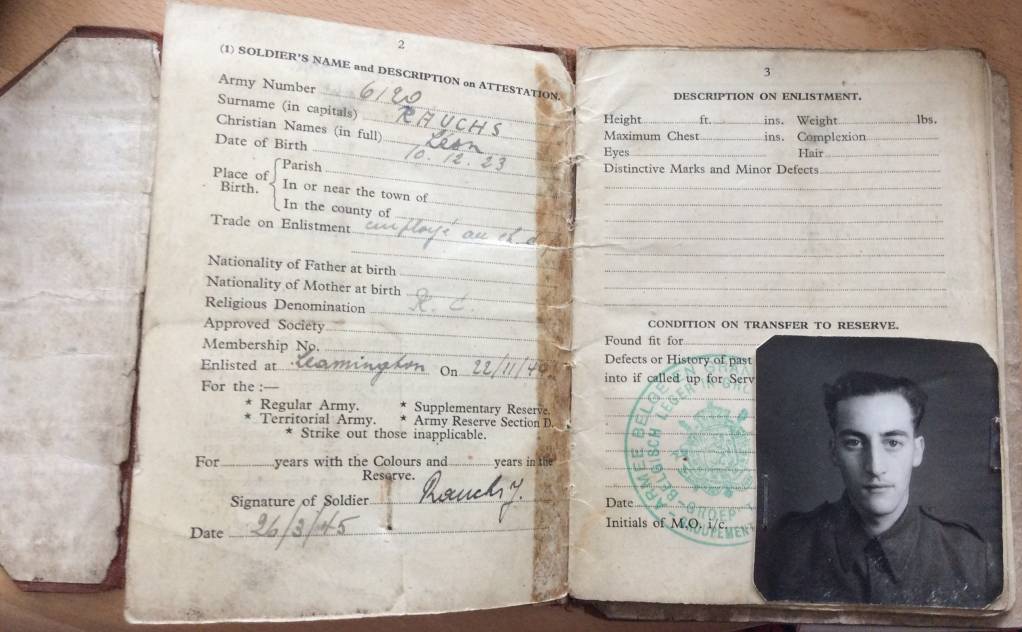 2
(1) SOLDIER'S NAME and DESCRIPTION on ATTESTATION.
Army Number 6120
Surname (in capitals) RAUCHS
Christian Names (in full) Léon
Date of Birth 10.12.23
Place of Birth.
Parish
In or near the town of
In the county of
Trade on Enlistment employé au
Nationality of Father at birth
Nationality of Mother at birth
Religious Denomination R. C.
Approved Society
Membership No.
Enlisted at Leamington On 22/11/4
For the :—
* Regular Army. * Supplementary Reserve.
* Territorial Army. * Army Reserve Section D.
* Strike out those inapplicable.
For years with the Colours and years in the
Reserve.
Signature of Soldier Rauchs J.
Date 26/3/45
3
DESCRIPTION ON ENLISTMENT.
Height ft. ins. Weight lbs.
Maximum Chest ins. Complexion
Eyes Hair
Distinctive Marks and Minor Defects
CONDITION ON TRANSFER TO RESERVE.
Found fit for
Defects or History of past
into if called up for Serv
Date
Initials of M.O. i/c.
ARMÉE BELGE
BELGISCH LEGER
GROEP